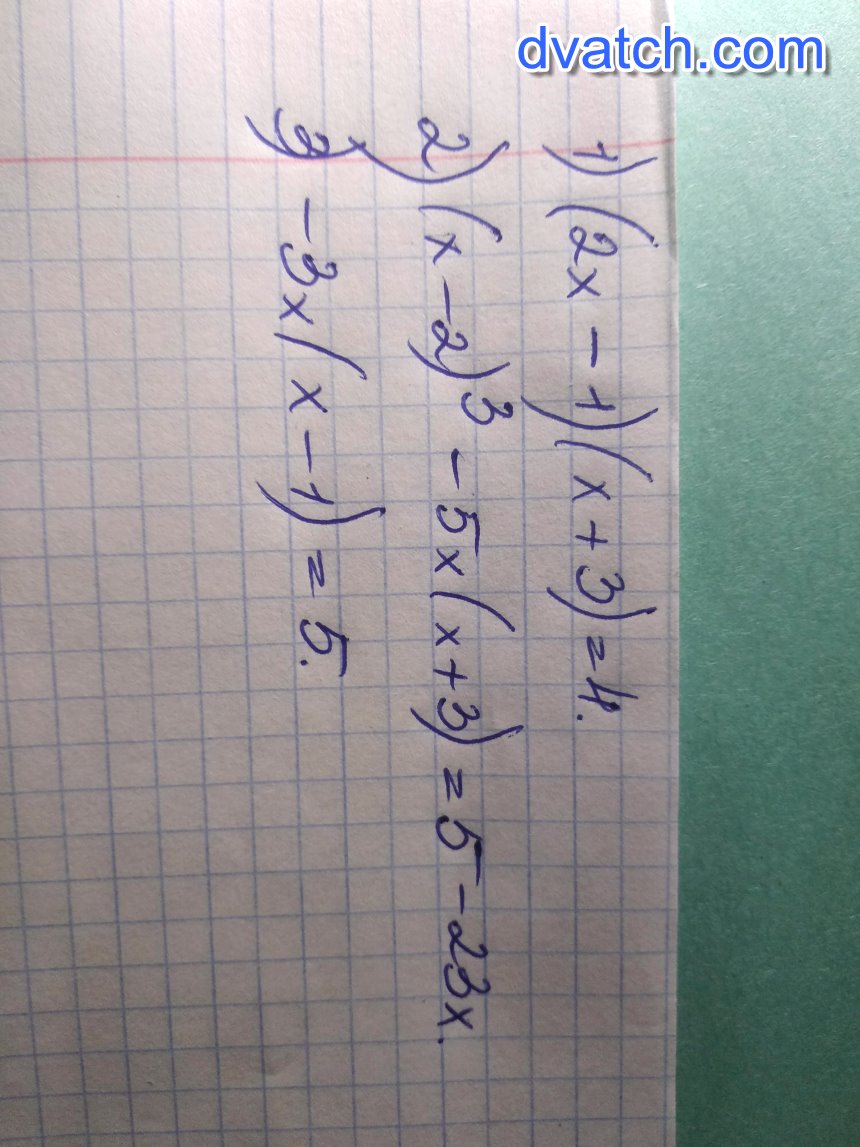 dvatch.com
1) (2x - 1)(x + 3) = 4.
2) (x - 2)³ - 5x(x + 3) = 5 - 23x.
3) - 3x(x - 1) = 5.